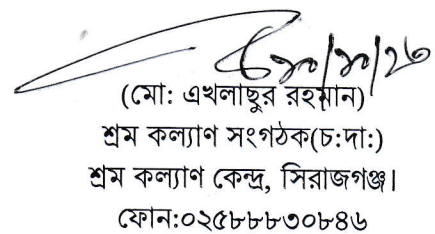 (মো: এখলাছুর রহমান)
শ্রম কল্যাণ সংগঠক(চ:দা:)
শ্রম কল্যাণ কেন্দ্র, সিরাজগঞ্জ।
ফোন:০২৫৮৮৮৩০৮৪৬